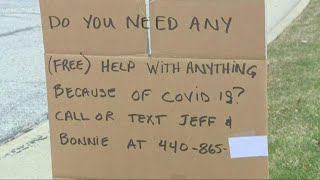 DO YOU NEED ANY
(FREE) HELP WITH ANYTHING
BECAUSE OF COVID 19?
CALL OR TEXT JEFF &
BONNIE AT 440-865-